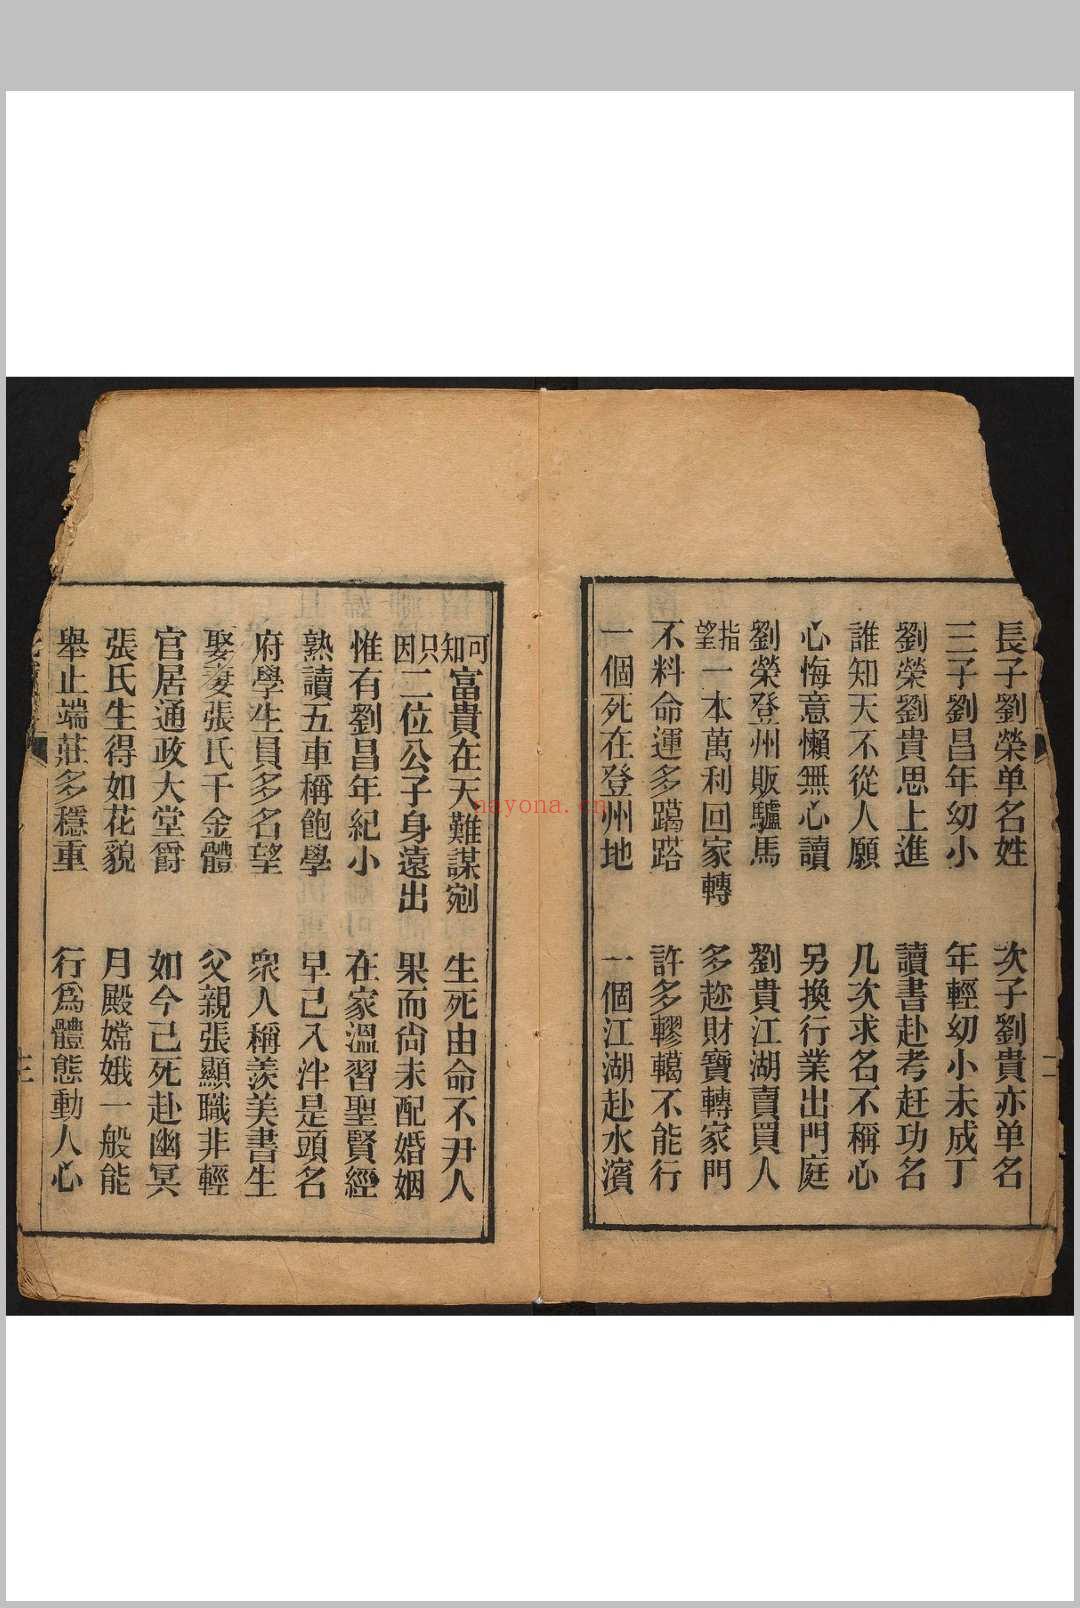 長子劉榮单名姓　次子劉貴亦单名
三子劉昌年幼小　年輕幼小未成丁
劉榮劉貴思上進　讀書赴考赶功名
誰知天不從人願　几次求名不稱心
心悔意懶無心讀　另換行業出門庭
劉榮登州販驢馬　劉貴江湖賣買人
指望一本萬利回家轉　多趂財寶轉家門
不料命運多蹊　許多轇轕不能行
一個死在登州地　一個江湖赴水濱
二
可知富貴在天難謀　生死由命不尹人
只因二位公子身遠出　果而尙未配婚姻
惟有劉昌年紀小　在家溫習聖賢經
熟讀五車稱飽學　早已入泮是頭名
府學生員多名望　衆人稱羨美書生
娶妻張氏千金體　父親張顯職非輕
官居通政大堂爵　如今已死赴幽冥
張氏生得如花貌　月殿嫦娥一般能
舉止端莊多穩重　行為體態動人心
三
nayona.cn